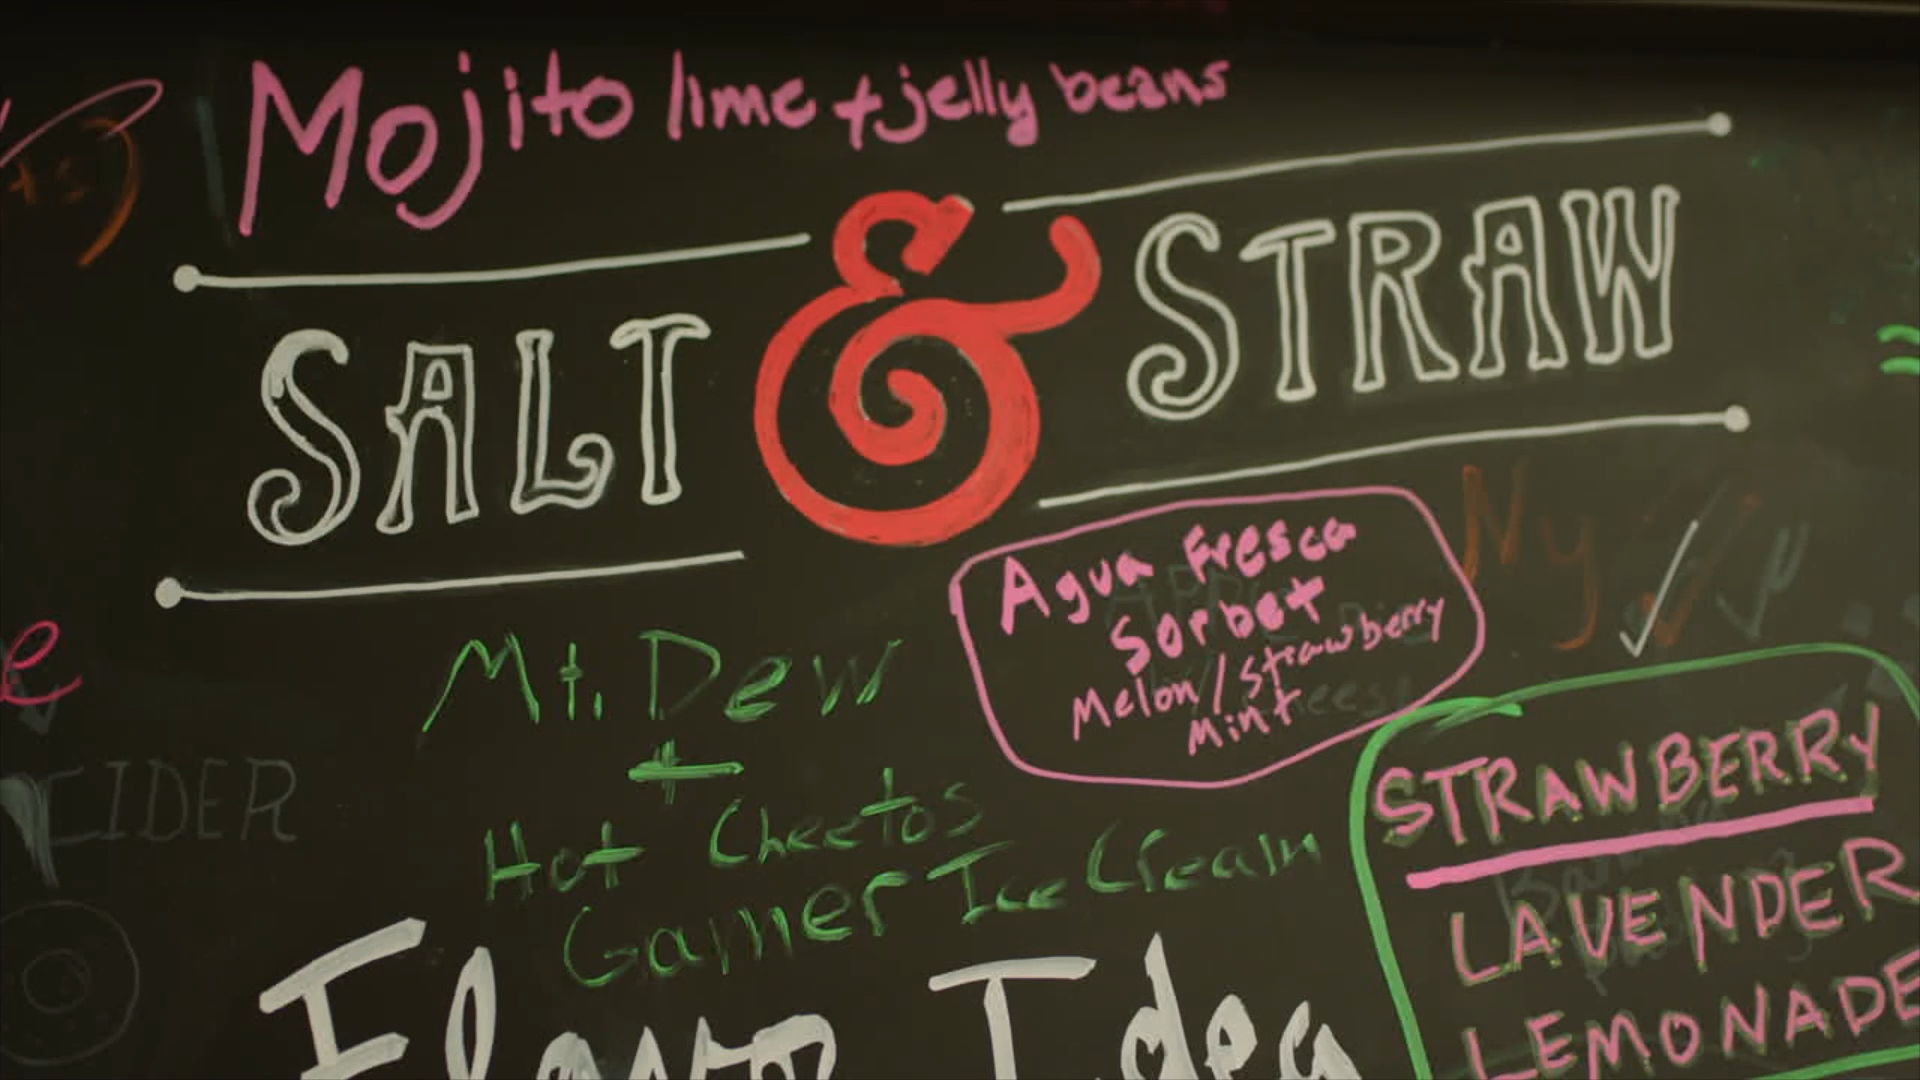 Mojito lime + jelly beans
SALT & STRAW
Agua Fresca
Sorbet
Melon / Strawberry
Mint
Mt. Dew
+
Hot Cheetos
Gamer Ice Cream
Flavor Idea
STRAWBERRY
LAVENDER
LEMONADE
CIDER
Ny
e